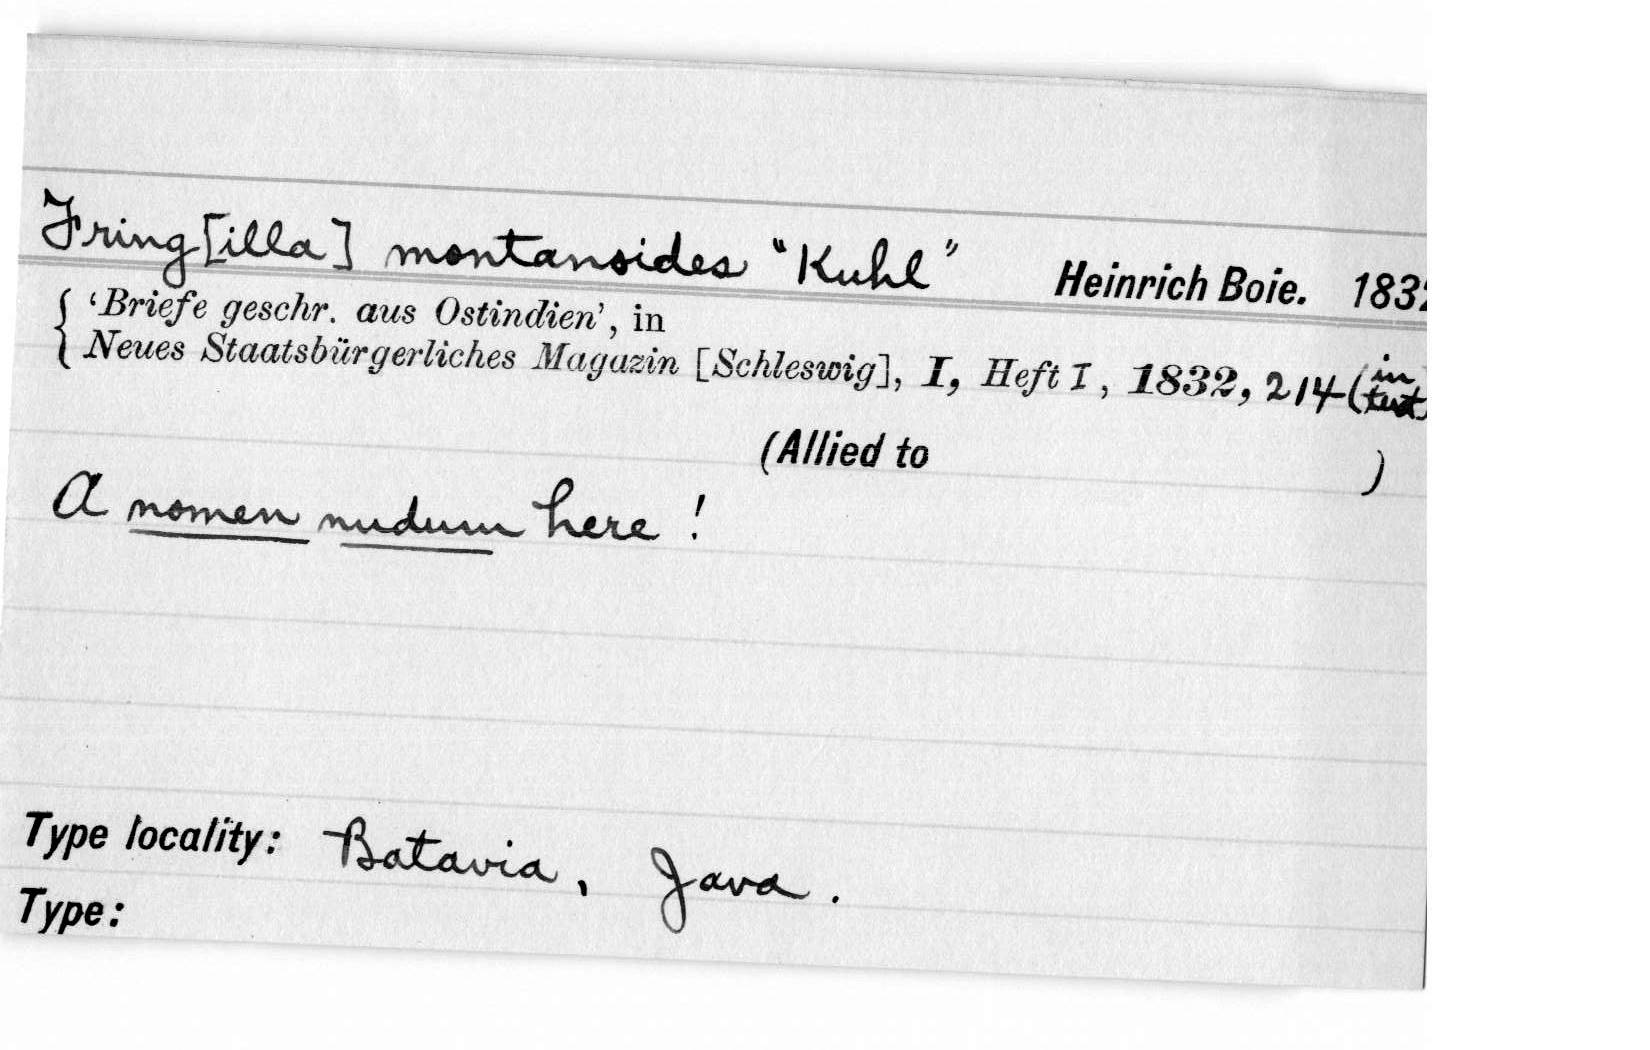 Fring[illa] montanoides "Kuhl" Heinrich Boie. 1832
{ 'Briefe geschr. aus Ostindien', in
Neues Staatsbürgerliches Magazin [Schleswig], I, Heft I, 1832, 214 (in text)
(Allied to )
A nomen nudum here!
Type locality: Batavia, Java.
Type: